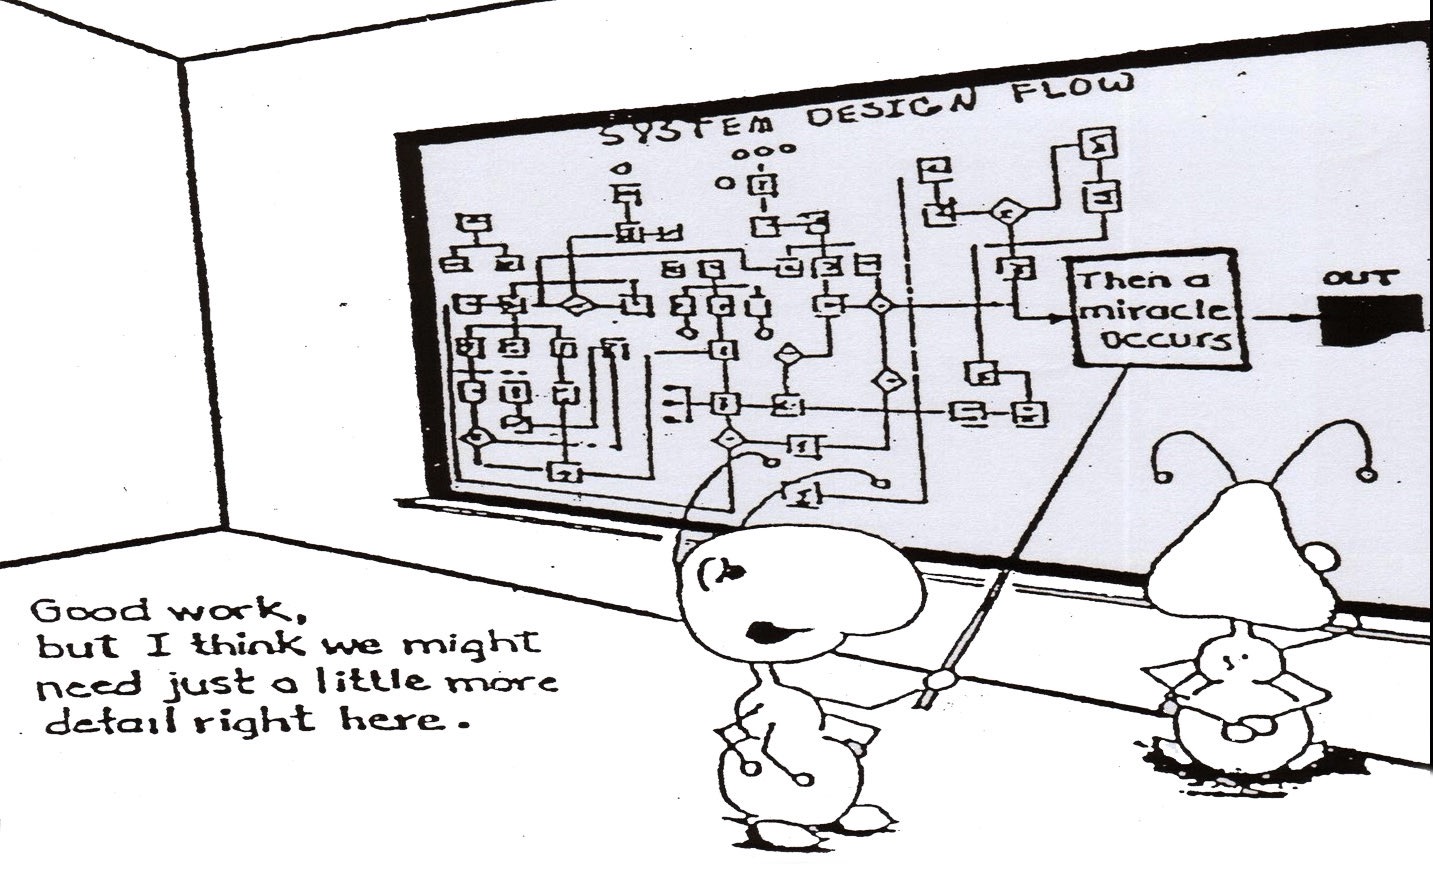 SYSTEM DESIGN FLOW
Then a
miracle
occurs
OUT
Good work,
but I think we might
need just a little more
detail right here.